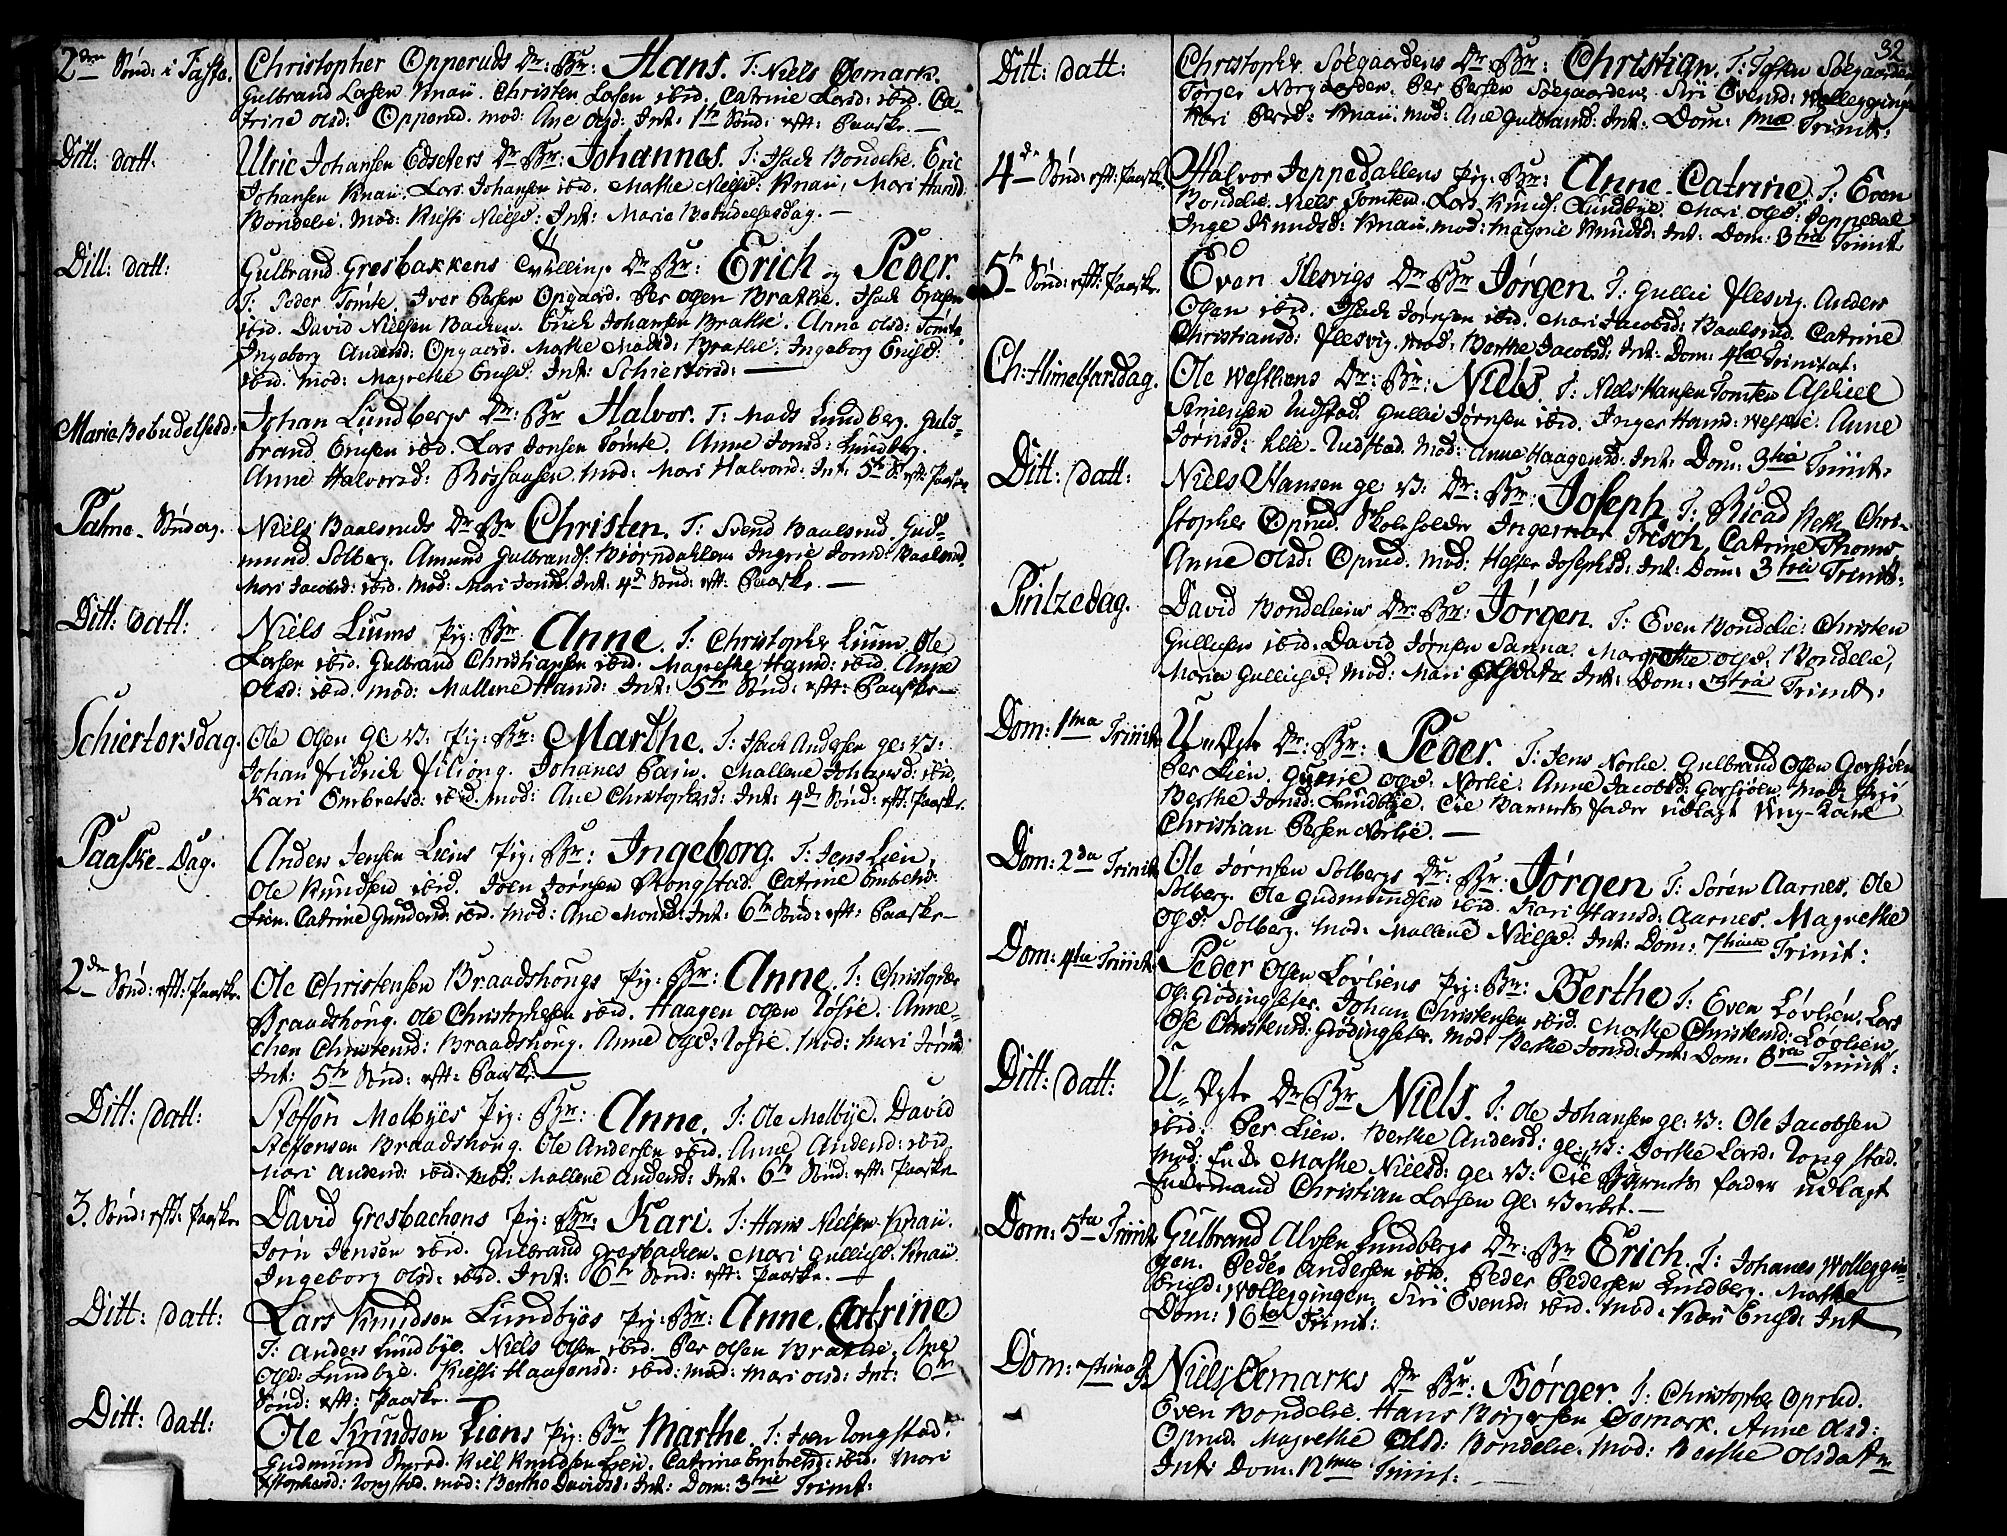 2den Sønd: i Faste. Christopher Opperuds Dr: Br: Hans. T: Niels Oemark.
Gulbrand Larsen Knaii. Christen Larsen ibid. Catrine Larsd: ibid. Ca-
trine Olsd: Opperud. mod: Ane Olsd: Int: 1te Sønd: eft: Paaske.
Ditt: datt: Ulric Johansen Edseters Dr Br: Johannes. T: Isach Bondelie. Eric
Johansen Knaii. Lars Johansen ibid. Marthe Nielsd: Knaii, Mari Hansd:
Bondelie. mod: Kirsti Nielsd: Int: Mariæ Bebudelsesdag.
Ditt: datt: Gulbrand Gresbakkens Tvilling: Dr Br: Erich og Peder.
T: Peder Tomte. Iver Persen Opgaard. Per Olsen Brathe. Isach
ibid. David Nielsen Bachen. Erich Johansen Brathe. Anne Olsd: Tomte.
Ingeborg Andersd: Opgaard. Marthe Madsd: Brathe: Ingeborg Erichsd:
ibid. mod: Magrethe Erichsd: Int: Schiertorsd:
Mariæ Bebudelsesd: Johan Lundbergs Dr: Br Halvor. T: Mads Lundberg. Guld-
brand Ericsen ibid. Lars Jonsen Tomte. Anne Jonsd: Lundberg.
Anne Halvorsd: Røshaugen. mod: Mari Halvorsd: Int: 5te S: eft: Paaske
Palme-Søndag. Niels Baalsruds Dr Br Christen. T: Svend Baalsrud. Gud-
mund Solberg. Amund Gulbrands: Biørndahlen. Ingrie Jonsd: Baalsrud.
Mari Jacobsd: ibid. mod: Mari Jonsd: Int: 4de Sønd: eft: Paaske.
Ditt: datt: Niels Liums Pig: Br Anne. T: Christopher Lium. Ole
Larsen ibid. Gulbrand Christiansen ibid. Magrethe Hansd: ibid. Anne
Olsd: ibid. mod: Mallene Hansd: Int: 5te Sønd: eft: Paaske
Schiertorsdag. Ole Olsen ge: V: Pig: Br: Marthe. T: Isach Andersen ge: V:
Johan Fridrich Johanes Pain. Mallene Johansd: ibid.
Kari Embretsd: ibid. mod: Ane Christophersd: Int: 4de Sønd: eft: Paaske.
Paaske-Dag. Anders Jensen Liens Pig: Br: Ingeborg. T: Jens Lien.
Ole Knudsen ibid. Joen Jørnsen Rongstad. Catrine Embretsd:
Lien. Catrine Gundersd: ibid. mod: Ane Monsd: Int: 6te Sønd: eft: Paaske
2den Sønd: eft: Paaske. Ole Christensen Braadshougs Pig: Br: Anne. T: Christopher
Braadshoug. Ole Christophersen ibid. Haagen Olsen Anne-
chen Christensd: Braadshoug. Anne Olsd: mod: Mari
Int: 5te Sønd: eft: Paaske.
Ditt: datt: Stoffon Melbyes Pig: Br: Anne. T: Ole Melbye. David
Steffensen Braadshoug. Ole Andersen ibid. Anne Andersd: ibid.
Mari Andersd: ibid: mod: Mallene Andersd: Int: 6te Sønd: eft: Paaske
3. Sønd: eft: Paaske. David Gresbachens Pig: Br: Kari. T: Hans Nielsen Knaii.
Jørn Jensen ibid. Gulbrand Gresbachen. Mari Gullichsd: Knaii.
Ingeborg Olsd: ibid. Int: 6te Sønd: eft: Paaske.
Ditt: datt: Lars Knudsen Lundbyes Pig: Br: Anne. Catrine
T: Anders Lundbye. Niels Olsen ibid. Per Olsen Brathe. Ane
Olsd: Lundbye. Kirsti Haagensd: ibid: mod: Mari Olsd: Int: 6te
Sønd: eft: Paaske.
Ditt: datt: Ole Knudsen Liens Pig: Br Marthe. T: Joen Rongstad:
Gudmund Kiel Knudsen Lien. Catrine Embretsd: ibid: Mari
Rongstad. mod: Berthe Davidsd: Int: Dom: 3tie Trinit:
32
Ditt: datt: Christopher Solgaardens Dr Br: Christian. T: Solgaarden
Tørger Nørgaarden. Per Persen Solgaarden. Siri Evensd: Wolleggingen
Kari Persd: Knaii. mod: Ane Gulbrandsd: Int: Dom: 1ma Trinit:
4de Sønd: eft: Paaske. Halvor Jeppedahlens Pig: Br: Anne-Catrine. T: Even
Bondelie. Niels Tomten. Lars Knuds: Lundbye. Mari Olsd: Jeppedal
Inge Knudsd: Knaii. mod: Magrie Knudsd: Int: Dom: 3tia Trinit
5te Sønd: eft: Paaske. Even Flesvigs Dr Br Jørgen. T: Gullie Flesvig. Anders
Olsen ibid. Isach Jørnsen ibid. Mari Jacobsd: Baalsrud. Catrine
Christiansd: Flesvig. mod: Berthe Jacobsd: Int: Dom: 4ta Trinitat:
Ch: Himelfardsdag. Ole Westliens Dr: Br: Niels. T: Niels Hansen Tomten Aschiel
Simensen Rudstad. Gullie Jørnsen ibid. Inger Hansd: Westlie: Anne
Jørnsd: Lille-Rudstad. mod: Anne Haagensd: Int: Dom: 3tia Trinit:
Ditt: datt: Niels Hansen ge: V: Dr: Br: Joseph. T: Ricad Chri-
stopher Oprud. Skoleholder Ingeman Frisch. Catrine Thoms
Anne Olsd: Oprud. mod: Hester Josephsd: Int: Dom: 3tia Trinit:
Pintzedag. David Bondeliens Dr: Br: Jørgen. T: Even Bondelie: Christen
Gullicsen ibid. David Jørnsen Sanna. Margrethe Olsd: Bondelie,
Maria Gullichsd: mod: Mari Olsdatr Int: Dom: 3tia Trinit:
Dom: 1ma Trinit: U-ægte Dr: Br: Peder. T: Jens Norlie. Gulbrand Olsen Gorsiøen
Per Lien. Olsd: Norlie. Anne Jacobsd: Gorsiøen. mod: Pige
Berthe Jonsd: Lundbye. Die Barnets fader udlagt Ung-Karl
Christian Persen Norlie.
Dom: 2da Trinit: Ole Jørnsen Solbergs Dr: Br: Jørgen T: Søren Aarnes. Ole
Solberg. Ole Gudmundsen ibid. Kari Hansd: Aarnes. Magrethe
Olsd: Solberg. mod: Mallene Nielsd: Int: Dom: 7tima Trinit:
Dom: 4ta Trinit: Peder Olsen Løvliens Pig: Br: Berthe T: Even Løvlien. Lars
Ols: Grødingseter. Johan Christensen ibid. Marthe Christensd: Løvlien.
Olse Christensd: Grødingseter. mod: Berthe Jonsd: Int: Dom: 6ta Trinit:
Ditt: datt: U-ægte Dr Br Niels. T: Ole Johansen ge: V: Ole Jacobsen
ibid: Per Lien. Berthe Andersd: ge: V: Dorthe Larsd: Rongstad.
mod: Marthe Nielsd: ge: V: Die Barnets fader udlagt
Christian Larsen ge: Verket.
Dom: 5ta Trinit: Gulbrand Alvsen Lundbergs Dr: Br Erich. T: Johanes Wolleggin-
gen. Peder Andersen ibid. Peder Pedersen Lundberg. Marthe
Erichsd: Wolleggingen, Siri Evensd: ibid. mod: Kari Erichsd: Int
Dom: 16ta Trinit:
Dom: 7tima Niels Oemarks Dr Br: Børger. T: Christopher Oprud.
Even Bondelie. Hans Børgersen Oemark. Anne Olsd:
Oprud. Magrethe Olsd: Bondelie. mod: Berthe Olsdatr
Int: Dom: 12ma Trinit: